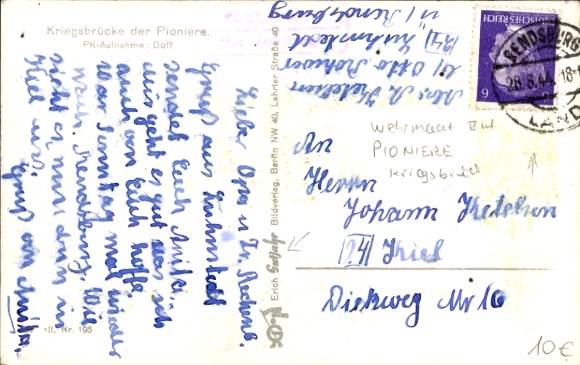 Kriegsbrücke der Pioniere.
PK-Aufnahme: Doff
Lieber Opa u.
Gruß aus Luhnstedt
sendet Euch Anita.
Mir geht es gut was ich
auch von Euch hoffe.
war Sonntag mal wieder
nach Rendsburg. Wie
sieht es nun dann in
Kiel aus.
Gruß von Anita
Nr. 195
Erich Gutjahr Bildverlag, Berlin NW 40, Lehrter Straße 40
b/ Otto
(24) Luhnstedt
ü/ Rendsburg
DEUTSCHES REICH
6
RENDSBURG
28.8.44.18-
LAND
An
Herrn
Johann Ketelsen
(24) Kiel
Diekweg Nr 16
Wehrmacht
PIONIERE
Kriegsbrück
10 €